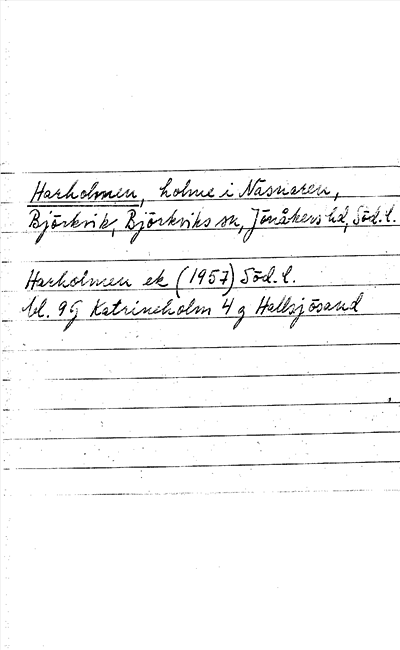 Harholmen, holme i Nasnaren,
Björkvik, Björkviks sn, Jönåkers hd, Söd. l.
Harholmen ek (1957) Söd. l.
bl. 9G Katrineholm 4 g Hallsjösand